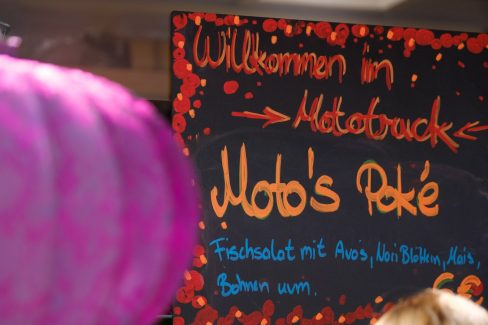 Willkommen im
Mototruck
Moto's Poké
Fischsalat mit Avo's, Nori Blättern, Mais,
Bohnen uvm.